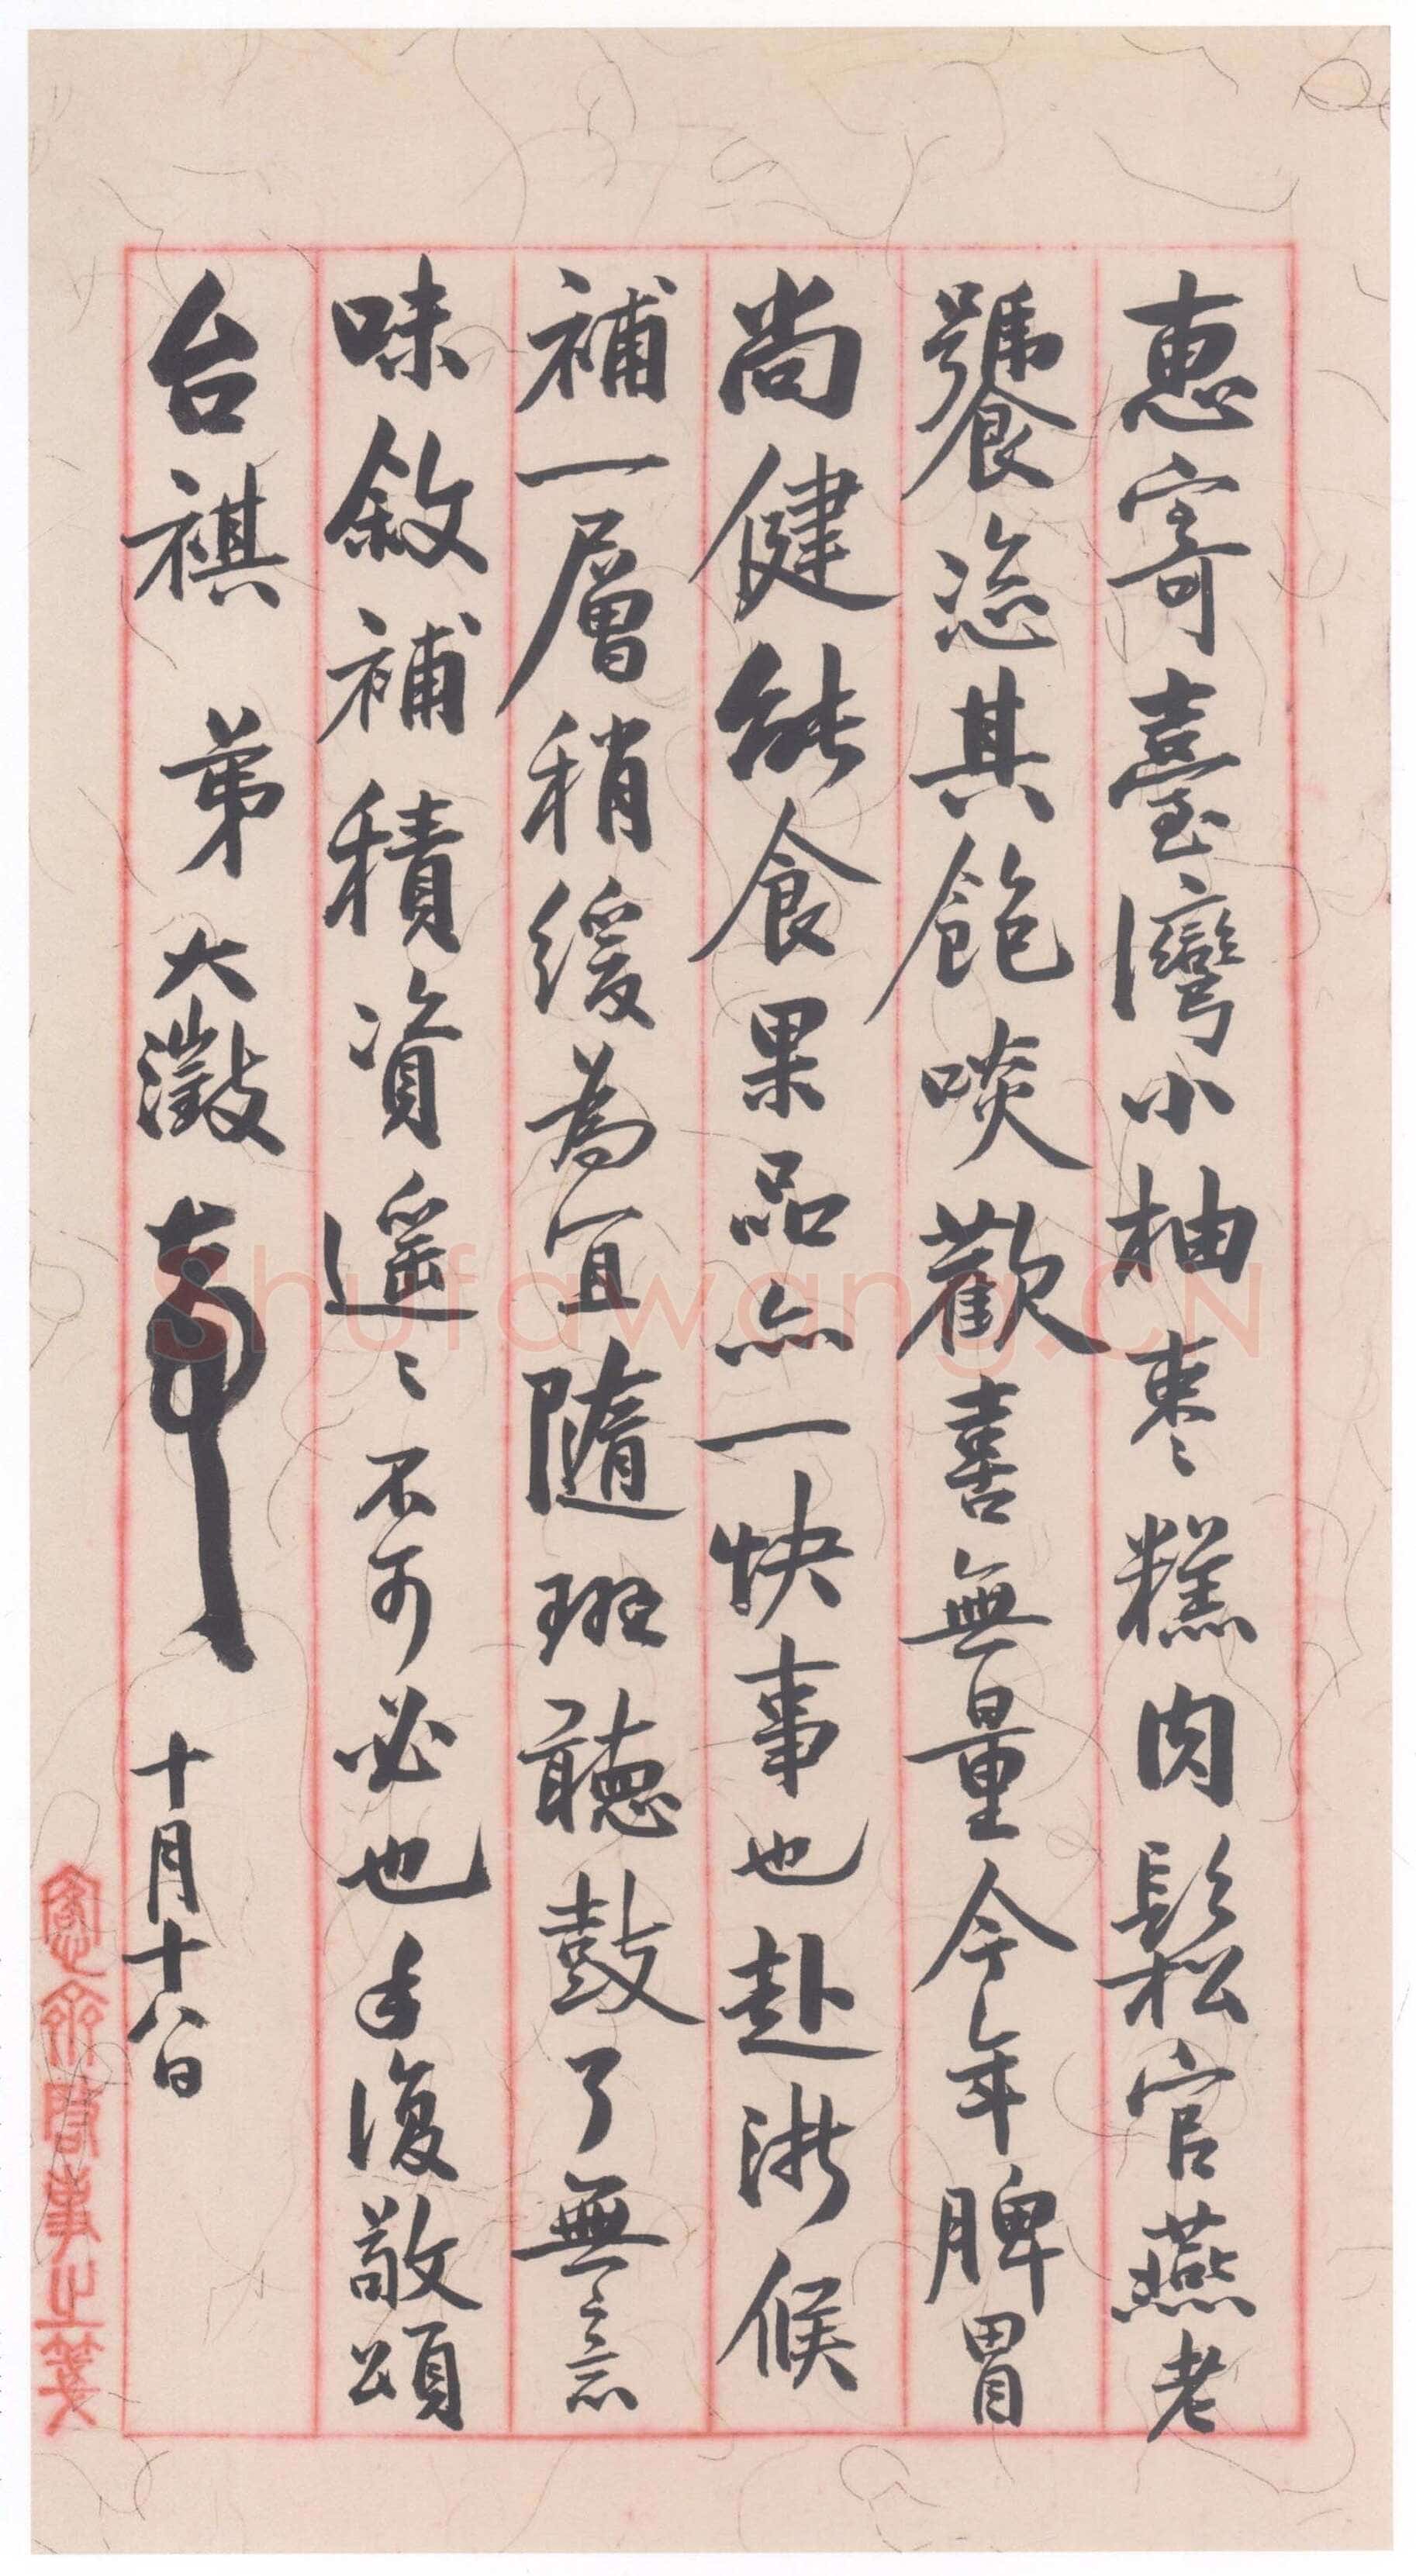 惠寄臺灣小柚棗〻糕肉鬆官燕老
饕恣其飽啖歡喜無量今年脾胃
尚健能食果品亦一快事也赴浙候
補一層稍緩為宜隨班聽鼓了無意
味敘補積資遥〻不可必也手復敬頌
台祺 弟大澂 十月十八日
愙齋 事之箋
Shufawang.CN